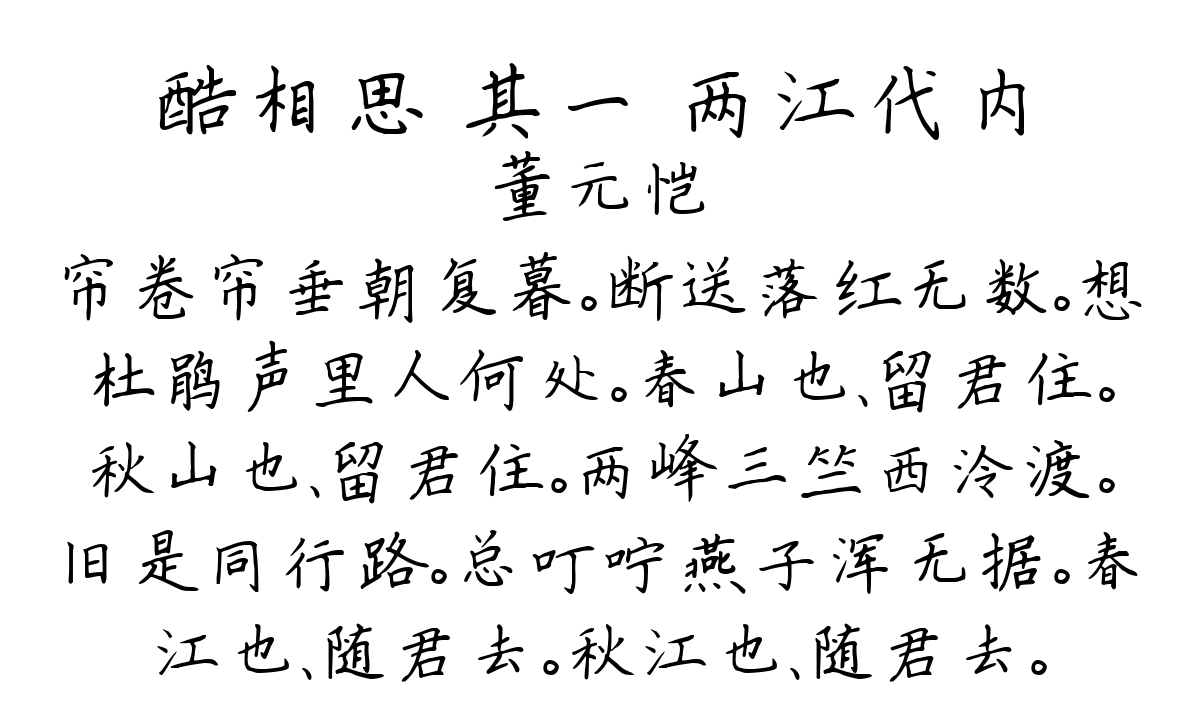 酷相思 其一 两江代内
董元恺
帘卷帘垂朝复暮。断送落红无数。想
杜鹃声里人何处。春山也、留君住。
秋山也、留君住。两峰三竺西泠渡。
旧是同行路。总叮咛燕子浑无据。春
江也、随君去。秋江也、随君去。